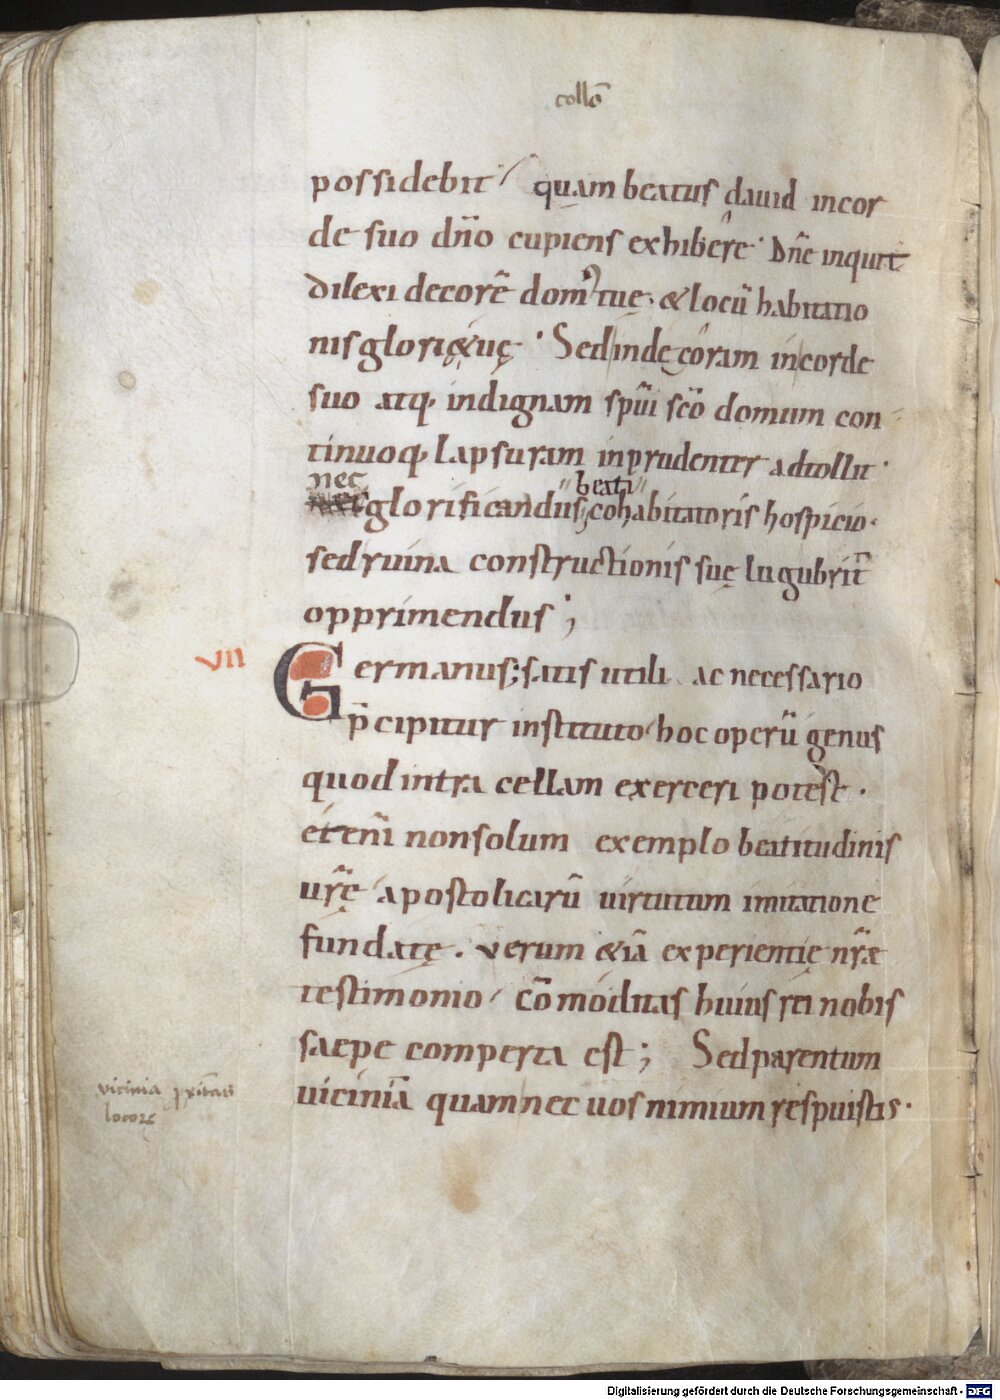 collō
possidebit quam beatus dauid incor
de suo dño cupiens exhibere. Dñe inquit
dilexi decorē dom' tuę. & locū habitatio
nis glorię tuę. Sed inde coram in corde
suo atq. indignam spūi scō domum con
tinuo q. lapsuram inprudenter adtollit.
nec beati
glorificandus; cohabitatoris hospicio.
sed ruina constructionis suę lugubrit̄
opprimendus;
VII Germanus; satis utili ac necessario
p̄cipitur instituto hoc operū genus
quod intra cellam exerceri potest.
etenī non solum exemplo beatitudinis
ūrę apostolicarū uirtutum imitatione
fundatę. verum &iā experientię nr̄ae
testimonio cōmoditas huius rei nobis
saepe comperta est; Sed parentum
uiciniā quam nec uos nimium respuistis.
vicinia
locorꝫ
Digitalisierung gefördert durch die Deutsche Forschungsgemeinschaft - DFG